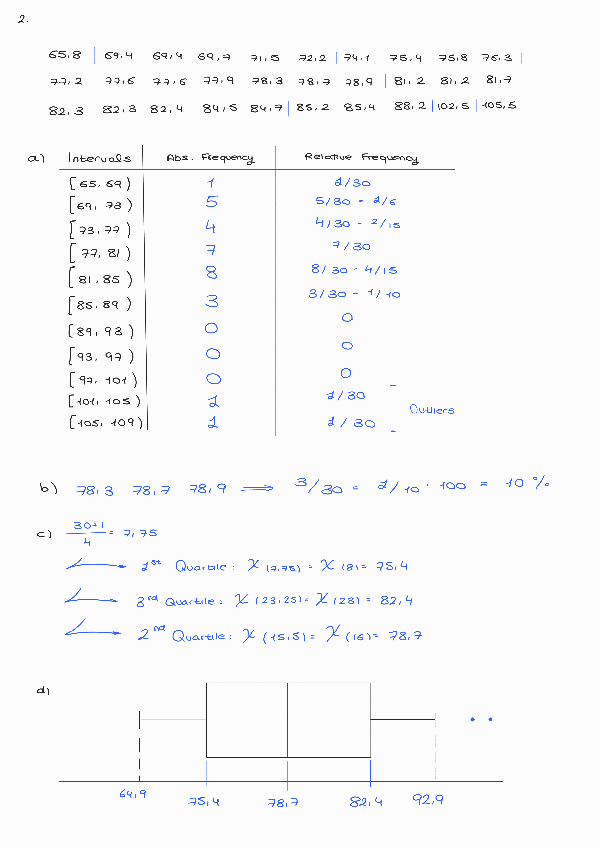 2.
65,8 | 69,4 69,4 69,7 71,5 72,2 | 74,1 75,4 75,8 76,3 |
77,2 77,6 77,6 77,9 78,3 78,7 78,9 | 81,2 81,2 81,7
82,3 82,3 82,4 84,5 84,7 | 85,2 85,4 88,2 | 102,5 | 105,5
a) Intervals Abs. Frequency Relative Frequency
[65, 69) 1 1/30
[69, 73) 5 5/30 = 1/6
[73, 77) 4 4/30 = 2/15
[77, 81) 7 7/30
[81, 85) 8 8/30 = 4/15
[85, 89) 3 3/30 = 1/10
[89, 93) 0 0
[93, 97) 0 0
[97, 101) 0 0
[101, 105) 1 1/30
Outliers
[105, 109) 1 1/30
b) 78,3 78,7 78,9 ⟹ 3/30 = 1/10 · 100 = 10 %
c) 30+1/4 = 7,75
1st Quartile: X (7,75) = X (8) = 75,4
3rd Quartile: X (23,25) = X (23) = 82,4
2nd Quartile: X (15,5) = X (16) = 78,7
d)
64,9 75,4 78,7 82,4 92,9